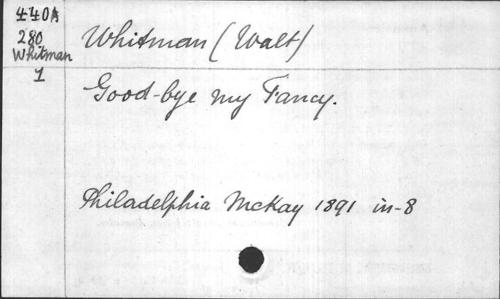 440A
280
Whitman
1
Whitman (Walt)
Good-bye my Fancy.
Philadelphia McKay 1891 in-8